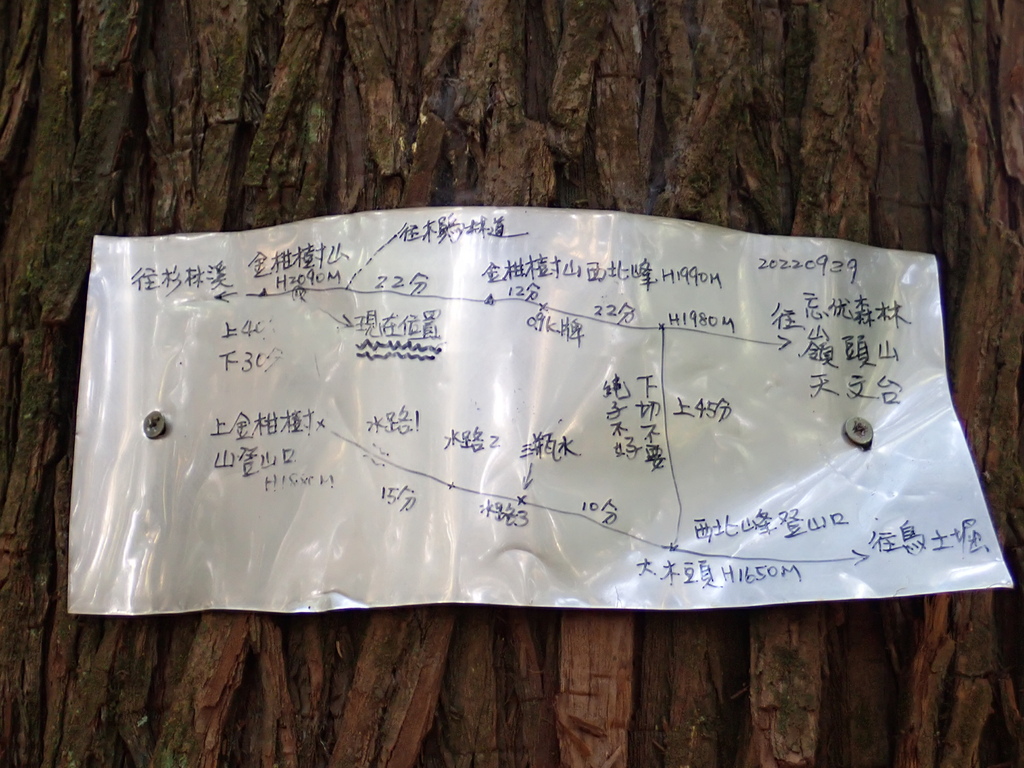 往杉林溪
金柑樹山
H2090M
22分
金柑樹山西北峰H1990M
12分
0.9K牌
22分
H1980M
20220929
往
忘优森林
山
鎖頭山
天文台
現在位置
下30分
上金柑樹
山登山口
水路1
15分
水路2
三瓶水
水路3
10分
下切不要
純子不好
上45分
西北峰登山口
大木頭H1650M
往鳥土堀